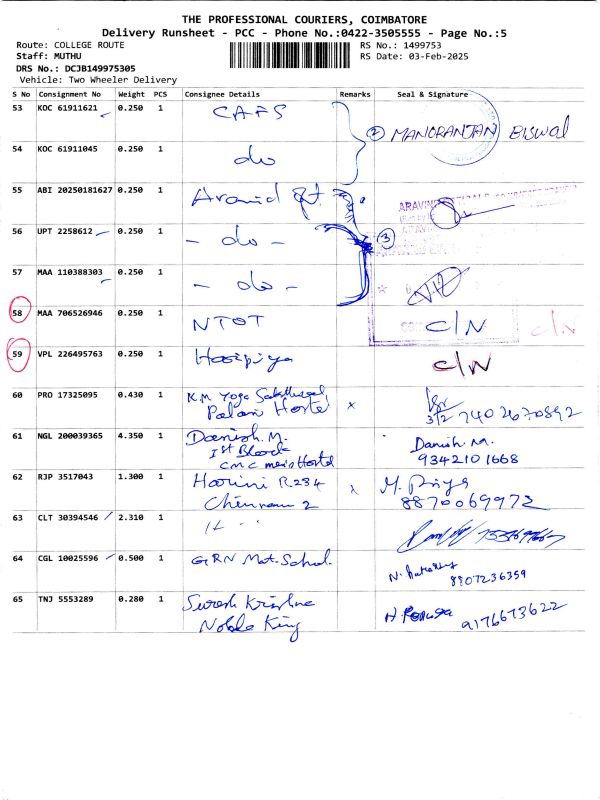 THE PROFESSIONAL COURIERS, COIMBATORE
Delivery Runsheet - PCC - Phone No.:0422-3505555 - Page No.:5
Route: COLLEGE ROUTE RS No.: 1499753
Staff: MUTHU RS Date: 03-Feb-2025
DRS No.: DCJB149975305
Vehicle: Two Wheeler Delivery
S No Consignment No Weight PCS Consignee Details Remarks Seal & Signature
53 KOC 61911621 0.250 1 CAFS
2 MANORANJAN BISWAL
54 KOC 61911045 0.250 1 do
55 ABI 20250181627 0.250 1 Aravind
ARAVIN
56 UPT 2258612 0.250 1 - do - 3
57 MAA 110388303 0.250 1 - do -
58 MAA 706526946 0.250 1 NTOT C/N C/N
59 VPL 226495763 0.250 1 C/N
60 PRO 17325095 0.430 1 K.M Yoga
Palani Hostel x 3/2 7402670892
61 NGL 200039365 4.350 1 Danish. M. Danish M.
1st Block 9342101668
CMC mens Hostel
62 RJP 3517043 1.300 1 Harini R.284 x M. Priya
2 8870069972
63 CLT 30394546 2.310 1
64 CGL 10025596 0.500 1 GRN Mat. School. N.
8807236359
65 TNJ 5553289 0.280 1 Suresh Krishna H.
Noble King 9176673622